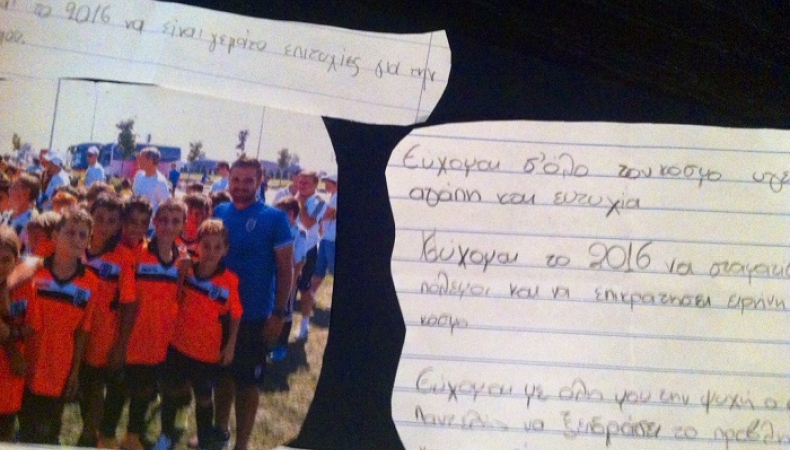 το 2016 να είναι γεμάτο επιτυχίες για την
μου.
Εύχομαι σ'όλο τον κόσμο υγε
αγάπη και ευτυχία
Εύχομαι το 2016 να σταματή
πόλεμοι και να επικρατήσει ειρήνη
κόσμο
Εύχομαι με όλη μου την ψυχή ο
Παντελής να ξεπεράσει το πρόβλη